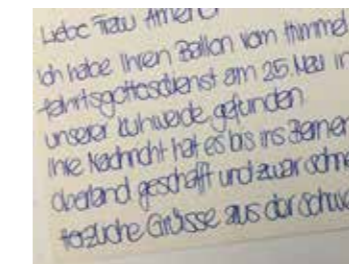 Liebe Frau
ich habe Ihren Ballon vom Himmel
fahrtsgottesdienst am 25. Mai in
unserer Kuhweide gefunden
Ihre Nachricht hat es bis ins Berner
oberland geschafft und zwar schne
herzliche Grüsse aus der Schwe